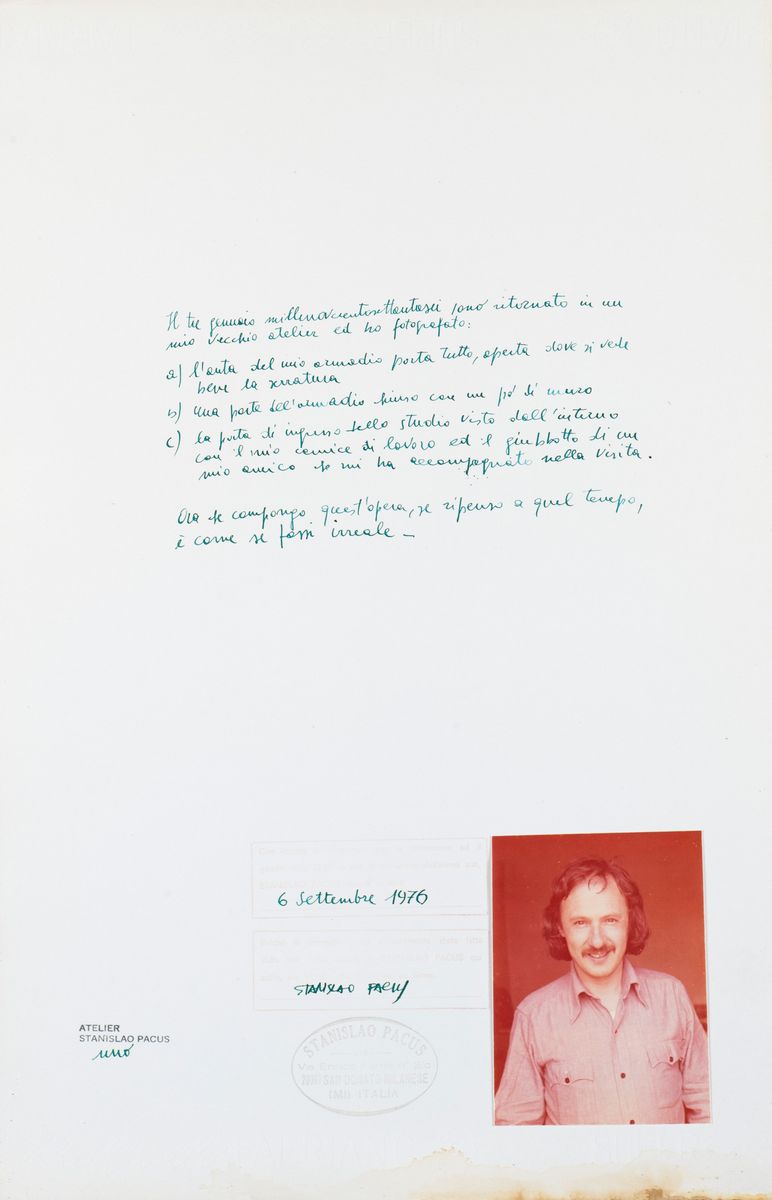 Il tre gennaio millenovecentosettantasei sono ritornato in un
mio vecchio atelier ed ho fotografato:
a) l'anta del mio armadio porta tutto, aperta dove si vede
bene la serratura
b) una parte dell'armadio chiuso con un po' di muro
c) la porta di ingresso dello studio visto dall'interno
con il mio camice di lavoro ed il giubbotto di un
mio amico che mi ha accompagnato nella visita.
Ora che compongo quest'opera, se ripenso a quel tempo,
è come se fossi irreale –
6 Settembre 1976
STANISLAO PACUS
ATELIER
STANISLAO PACUS
uno
STANISLAO PACUS
SAN DONATO MILANESE
(MI) ITALIA